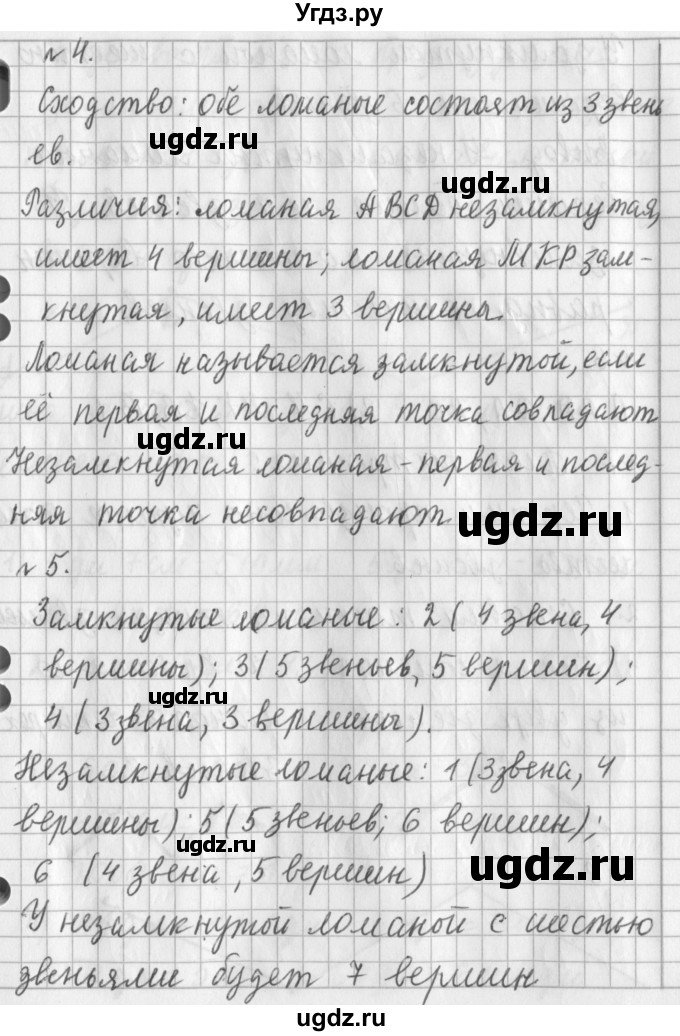 Угдз.ру
№ 4.
Сходство: обе ломаные состоят из 3 звень
ugdz.ru
ев.
ugdz.ru
Различия: ломаная ABCD незамкнутая,
имеет 4 вершины; ломаная МКР зам-
кнутая, имеет 3 вершины.
Ломаная называется замкнутой, если
её первая и последняя точка совпадают
ugdz.ru
Незамкнутая ломаная - первая и послед-
няя точка несовпадают
ugdz.ru
№ 5.
Замкнутые ломаные: 2 (4 звена, 4
вершины); 3 (5 звеньев, 5 вершин);
ugdz.ru
4 (3 звена, 3 вершины).
Незамкнутые ломаные: 1 (3 звена, 4
вершины); 5 (5 звеньев; 6 вершин);
ugdz.ru
ugdz.ru
6 (4 звена, 5 вершин)
У незамкнутой ломаной с шестью
ugdz.ru
звеньями будет 7 вершин
ugdz.ru